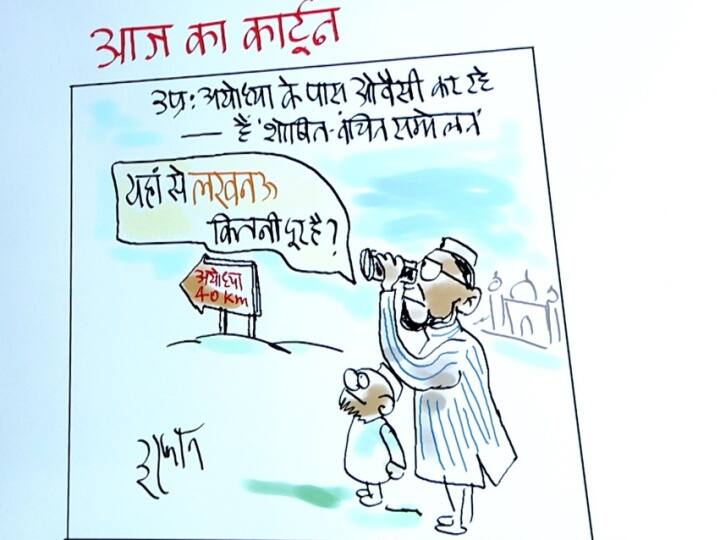 आज का कार्टून
उप्र: अयोध्या के पास ओवैसी कर रहे
— हैं 'शोषित-वंचित सम्मेलन'
यहां से लखनऊ
कितनी दूर है?
अयोध्या
40 KM
इरफान